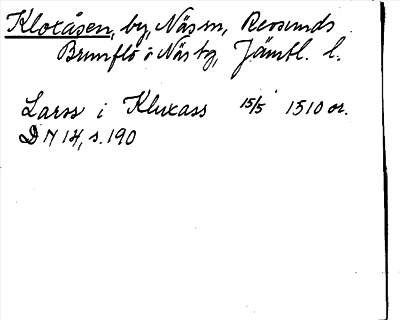 Kloxåsen, by, Näs sn, Revsunds
Brunflo o Näs tg, Jämtl. l.
Larss i Kluxass 15/5 1510 or.
DN 14, s. 190